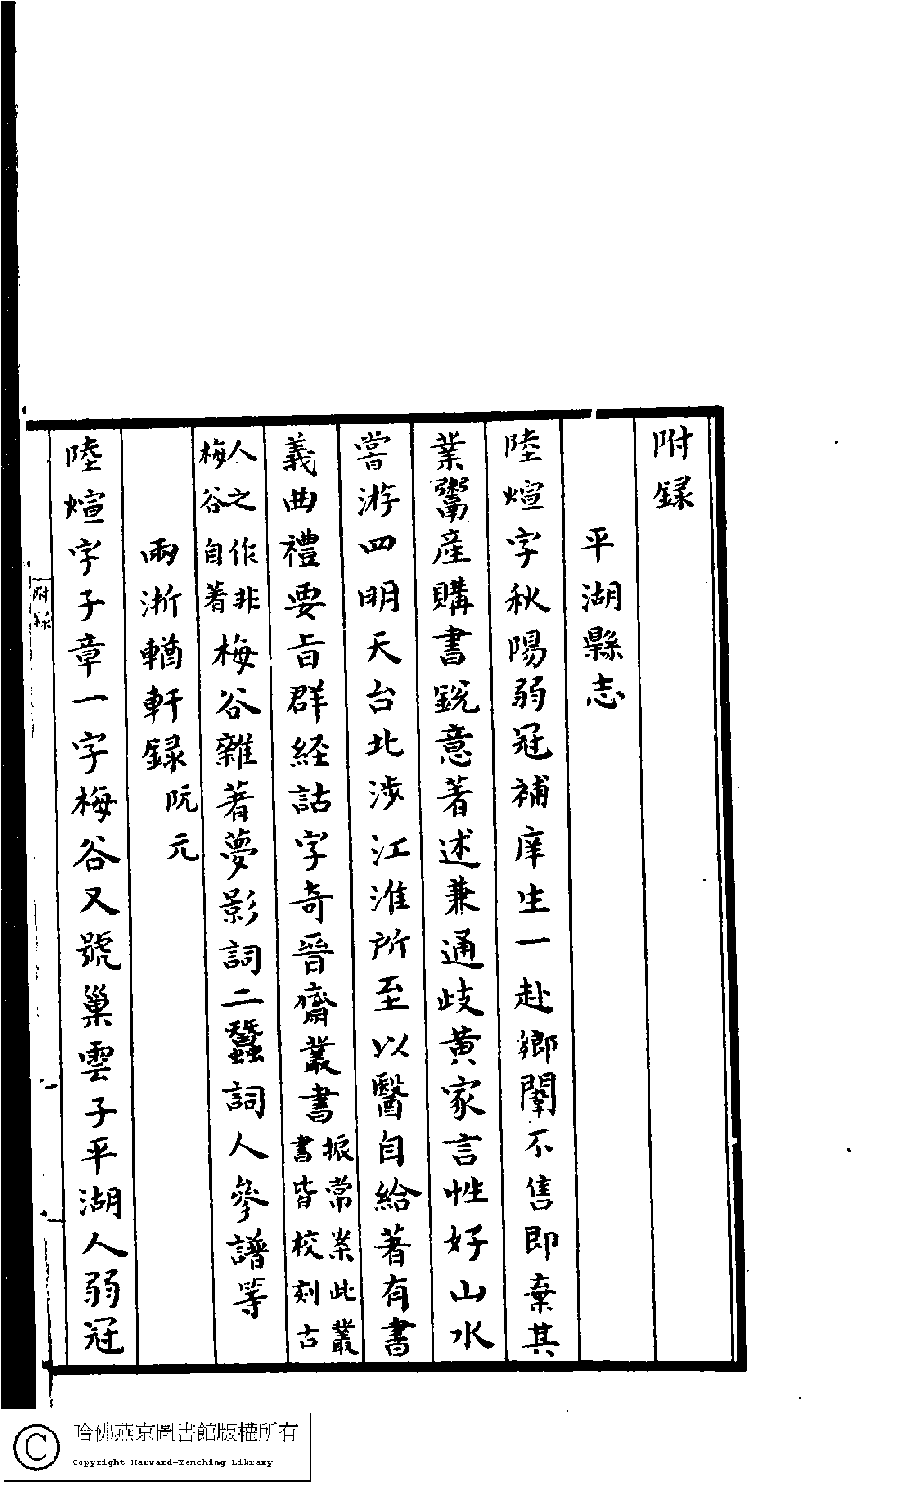 附録
平湖縣志
陸烜字秋陽弱冠補庠生一赴鄉闈不售即棄其
業鬻產購書銳意著述兼通歧黃家言性好山水
嘗游四明天台北涉江淮所至以醫自給著有書
義曲禮要旨群経詁字奇晉齋叢書振常案此叢書皆校刻古
人之作非梅谷自著梅谷雜著夢影詞二蠶詞人參譜等
兩浙輶軒録阮元
陸烜字子章一字梅谷又號巢雲子平湖人弱冠
附録
哈佛燕京圖書館版權所有
Copyright Harvard-Yenching Library